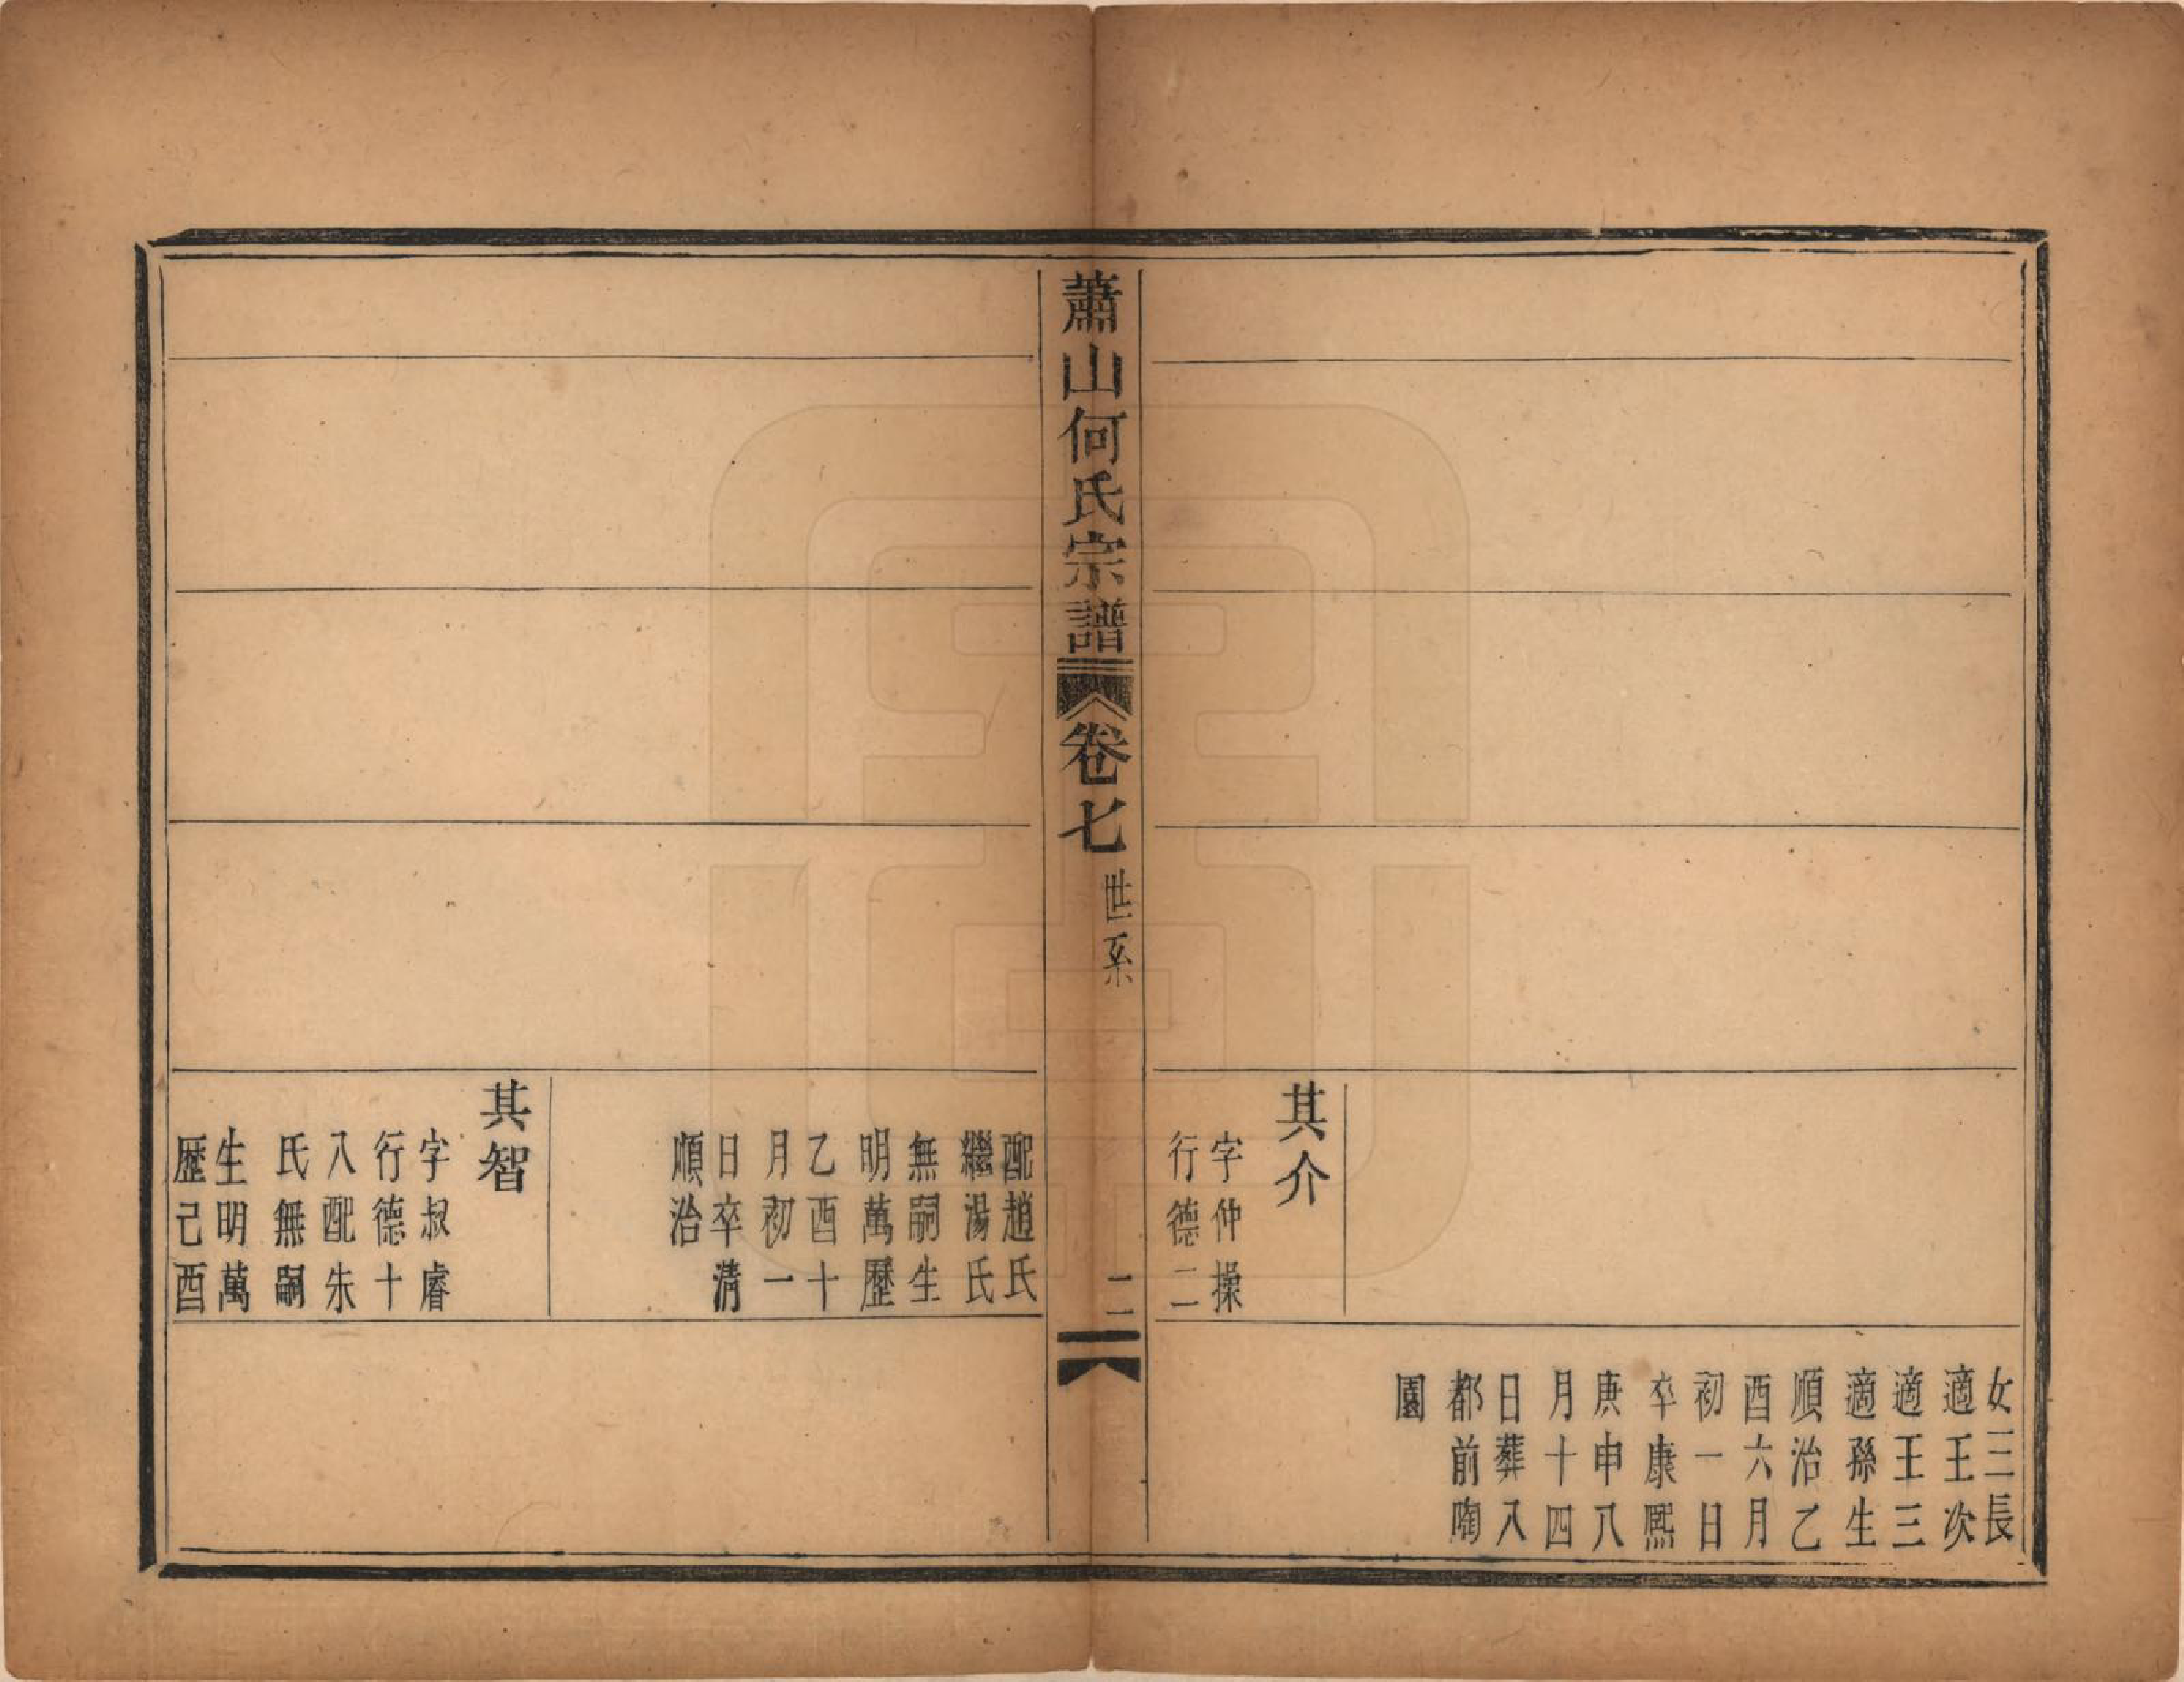 女三長
適王次
適王三
適孫生
順治乙
酉六月
初一日
卒康熙
庚申八
月十四
日葬入
都前陶
園
其介
字仲操
行德二
蕭山何氏宗譜
卷七
世系
二
配趙氏
繼湯氏
無嗣生
明萬歷
乙酉十
月初一
日卒清
順治
其智
字叔睿
行德十
八配朱
氏無嗣
生明萬
歷己酉